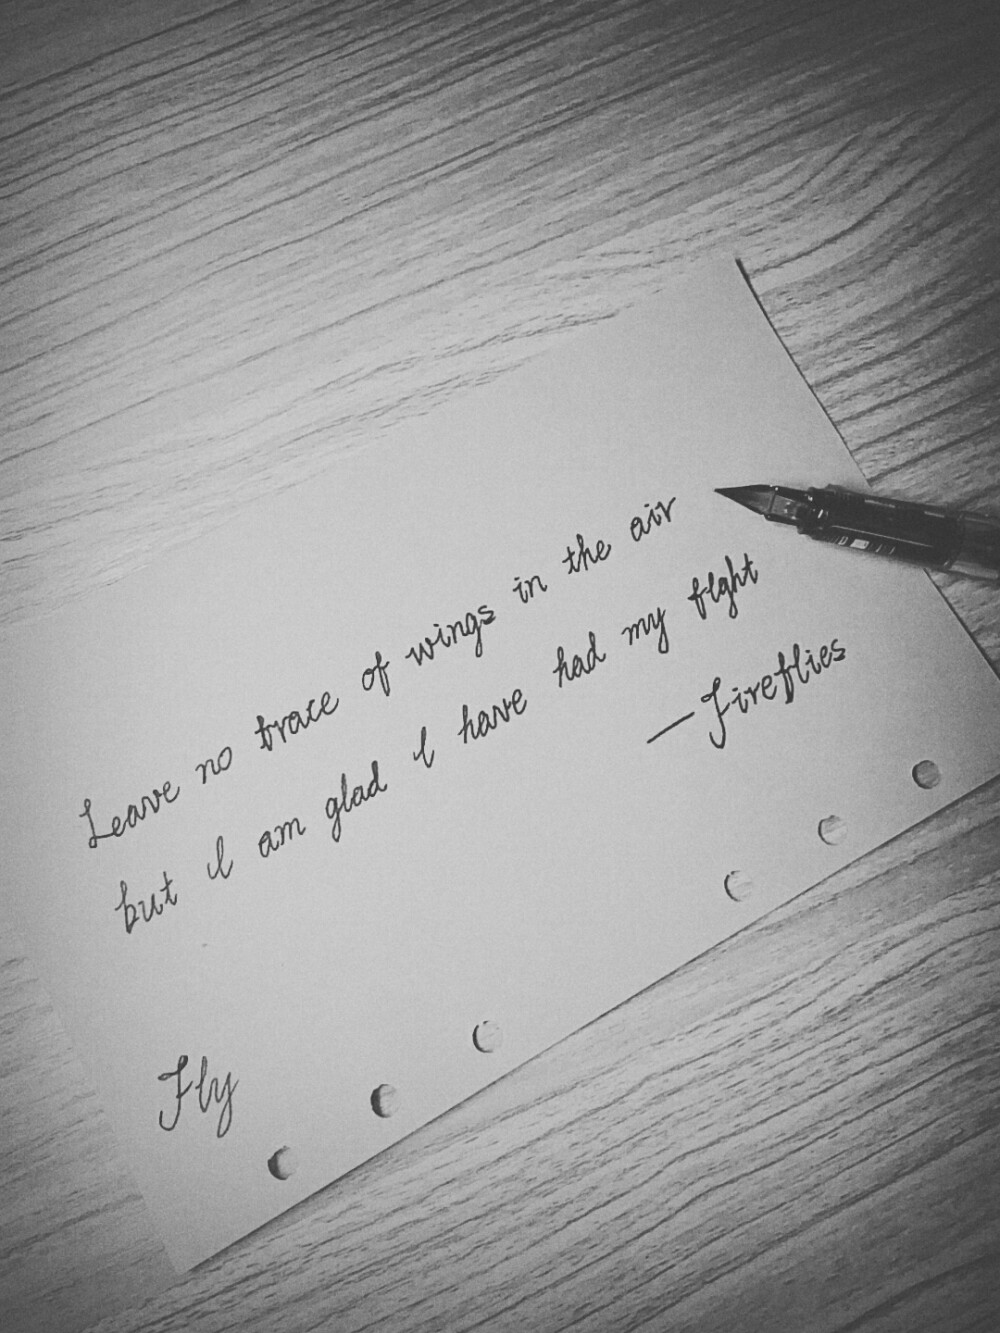 Leave no trace of wings in the air
but I am glad I have had my flght
—Fireflies
Fly